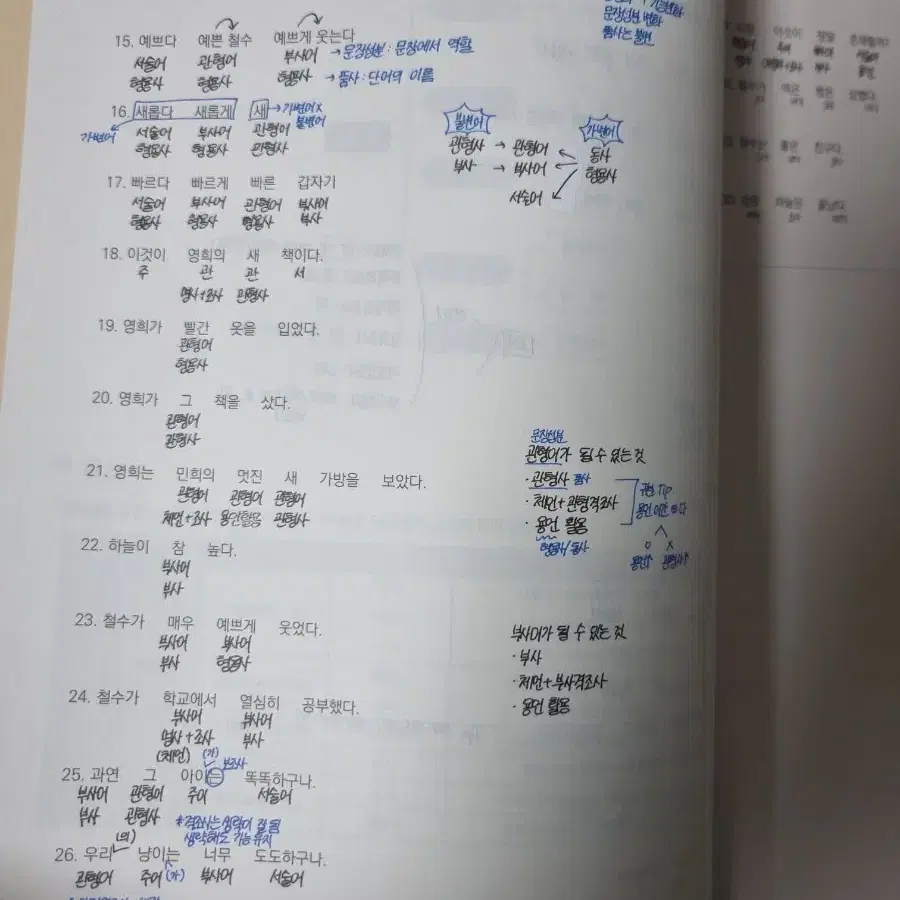 문장성분 변화
품사는 불변
15. 예쁘다 예쁜 철수 예쁘게 웃는다
서술어 관형어 부사어 → 문장성분 : 문장에서 역할
형용사 형용사 형용사 → 품사 : 단어의 이름
16. 새롭다 새롭게 새 → 가변어 X
불변어
가변어
서술어 부사어 관형어
형용사 형용사 관형사
불변어 가변어
관형사 → 관형어 동사
부사 → 부사어 형용사
서술어
17. 빠르다 빠르게 빠른 갑자기
서술어 부사어 관형어 부사어
형용사 형용사 형용사 부사
18. 이것이 영희의 새 책이다.
주 관 관 서
명사+조사 관형사
19. 영희가 빨간 옷을 입었다.
관형어
형용사
20. 영희가 그 책을 샀다.
관형어
관형사
21. 영희는 민희의 멋진 새 가방을 보았다.
관형어 관형어 관형어
체언+조사 용언활용 관형사
문장성분
관형어가 될 수 있는 것
· 관형사 품사
· 체언+관형격조사
· 용언 활용
형용사/동사
구분 Tip
O X
용언 관형사
22. 하늘이 참 높다.
부사어
부사
23. 철수가 매우 예쁘게 웃었다.
부사어 부사어
부사 형용사
부사어가 될 수 있는 것
· 부사
· 체언+부사격조사
· 용언 활용
24. 철수가 학교에서 열심히 공부했다.
부사어 부사어
명사+조사 부사
(체언) (가) 보조사
25. 과연 그 아이는 똑똑하구나.
부사어 관형어 주어 서술어
부사 관형사 *격조사는 생략이 잘 됨
생략해도 기능 유지
(의)
26. 우리 냥이는 너무 도도하구나.
관형어 주어 (가) 부사어 서술어